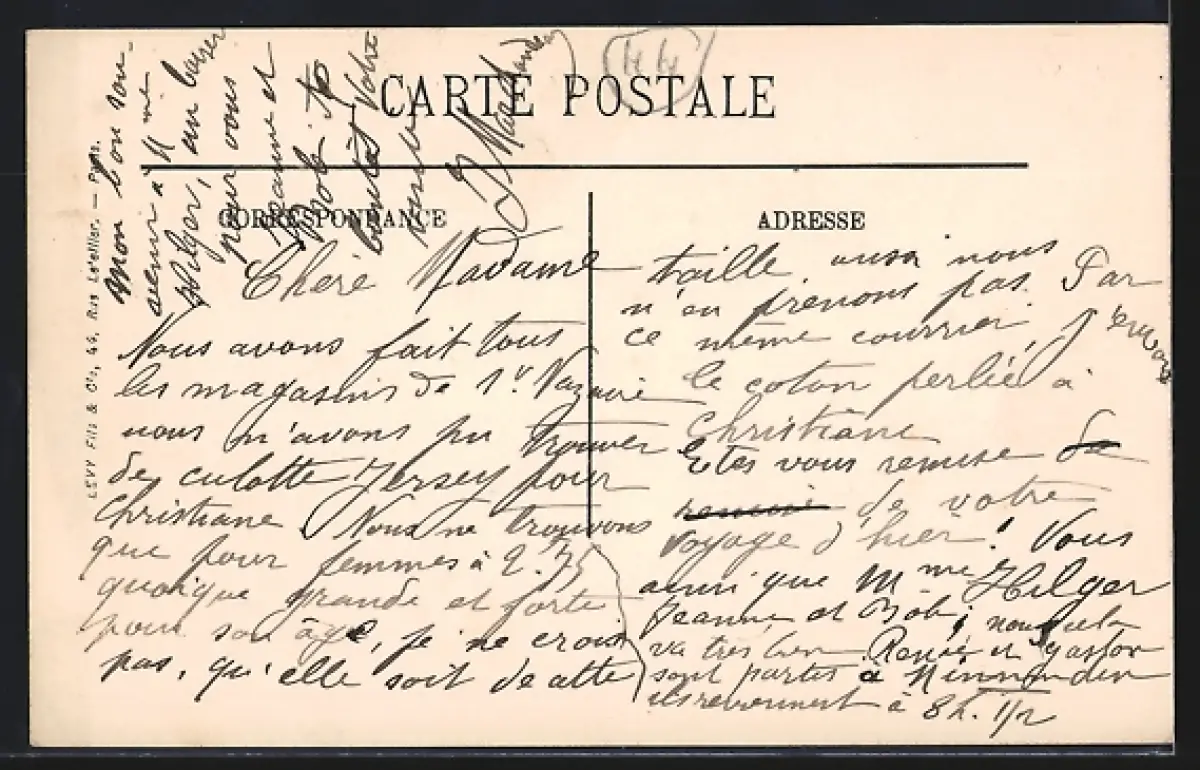 CARTE POSTALE
CORRESPONDANCE
ADRESSE
LEVY Fils & Cie, 44, Rue Letellier. — Paris.
Chère Madame
Nous avons fait tous
les magasins de St Nazaire
nous n'avons pu trouver
de culotte Jersey pour
Christiane. Nous ne trouvons
que pour femmes à 2.75
quoique grande et forte
pour son âge, je ne crois
pas, qu'elle soit de cette
taille, aussi nous
n'en prenons pas. Par
ce même courrier, j'envois
le coton perlée à
Christiane
Etes vous remise de
de votre
voyage d'hier! Vous
ainsi que Mme Hilger
Jeanne et Bob; nous cela
va très bien Renée et Gaston
sont partes à
ils reviennent à 8h. 1/2
Mon bon sou-
venir à Mme
Hilger, un baiser
pour vous
Jeanne et
Bob
Votre